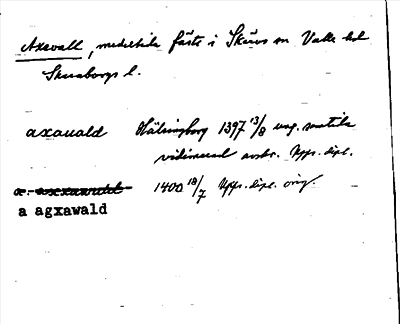 Axevall, medeltida fäste i Skärvs sn Valle hd
Skaraborgs l.
axauald Hälsingborg 1397 13/8 ung. samtida
vidimerad avskr. Upps. dipl.
1400 18/7 Upps. dipl. orig.
a agxawald